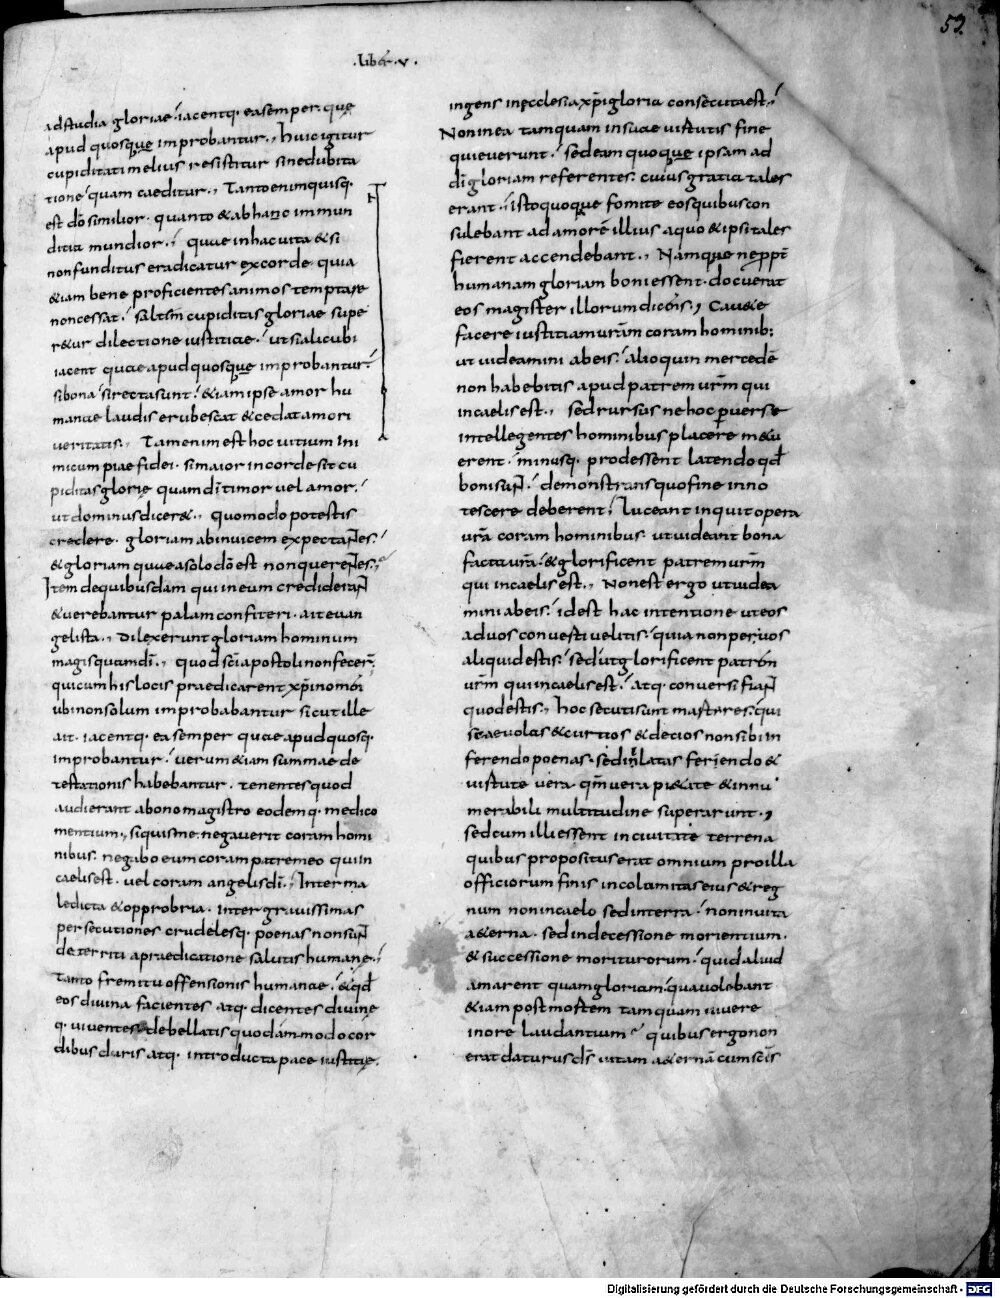 53
.liber.v.
ad studia gloriae iacentq. ea semper. quę
apud quosque improbantur., huic igitur
cupiditati melius resistitur sine dubita
tione quam caeditur., Tanto enim quisq.
est dō similior. quanto & ab hanc inmun
ditia mundior., quae in hac uita & si
non funditus eradicatur ex corde. quia
&iam bene proficientes animos temptare
non cessat. saltim cupiditas gloriae supe
r&ur dilectione iustitiae. ut si alicubi
iacent quae apud quosque improbantur.
si bona si recta sunt. &iam ipse amor hu
manae laudis erubescat & cedat amori
ueritatis., Tam enim est hoc uitium ini
micum piae fidei. si maior in corde sit cu
piditas glorię quam dī timor uel amor.
ut dominus dicer&., quomodo potestis
credere. gloriam abinuicem expectantes.
& gloriam quae a solo dō est non querentes.,
Item de quibusdam qui in eum crediderant
& uerebantur palam confiteri. ait euan
gelista., dilexerunt gloriam hominum
magis quam dī., quod sc̄i apostoli non fecer̄.
qui cum his locis praedicarent xp̄i nomen
ubi non solum improbabantur sicut ille
ait. iacentq. ea semper quae apud quosq.
improbantur. uerum &iam summae de
testationis habebantur. tenentes quod
audierant a bono magistro eodemq. medico
mentium., si quis me negauerit coram homi
nibus. negabo eum coram patre meo qui in
caelis est. uel coram angelis dī., Inter ma
ledicta & opprobria. inter grauissimas
persecutiones crudelesq. poenas non sunt
deterriti a praedicatione salutis humane.
tanto fremitu offensionis humanae. & qd̄
eos diuina facientes atq. dicentes diuine
q. uiuentes debellatis quodammodo cor
dibus duris atq. introducta pace iustitię.
ingens in ecclesia xp̄i gloria consecuta est.
Non in ea tamquam in suae uirtutis fine
quieuerunt. sed eam quoque ipsam ad
dī gloriam referentes. cuius gratia tales
erant. isto quoque fomite eos quibus con
sulebant ad amorē illius a quo & ipsi tales
fierent accendebant., Namque ne ppt̄
humanam gloriam boni essent. docuerat
eos magister illorum dicens., Cau&e
facere iustitiam uram coram hominib;
ut uideamini ab eis. alioquin mercedē
non habebitis apud patrem urm qui
in caelis est., sed rursus ne hoc peruerse
intellegentes hominibus placere m&u
erent. minusq. prodessent latendo qd̄
boni sunt. demonstrans quo fine inno
tescere deberent. Luceant inquit opera
urā coram hominibus. ut uideant bona
facta urā. & glorificent patrem urm
qui in caelis est., Non est ergo ut uidea
mini ab eis. id est hac intentione ut eos
ad uos conuerti uelitis. quia non per uos
aliquid estis. sed ut glorificent patrem
urm qui in caelis est. atq. conuersi fiant
quod estis., hoc secuti sunt martyres. qui
scaeuolas & curtios & decios non sibi in
ferendo poenas. sed inlatas ferendo &
uirtute uera. qm̄ uera pi&ate & innu
merabili multitudine superarunt.,
sed cum illi essent in ciuitate terrena
quibus propositus erat omnium pro illa
officiorum finis incolumitas eius & reg
num non in caelo sed in terra. non in uita
a&erna. sed in decessione morientium.
& successione moriturorum. quid aliud
amarent quam gloriam. qua uolebant
&iam post mortem tamquam uiuere
in ore laudantium. quibus ergo non
erat daturus ds̄ uitam a&ernā cum sc̄is
Digitalisierung gefördert durch die Deutsche Forschungsgemeinschaft - DFG